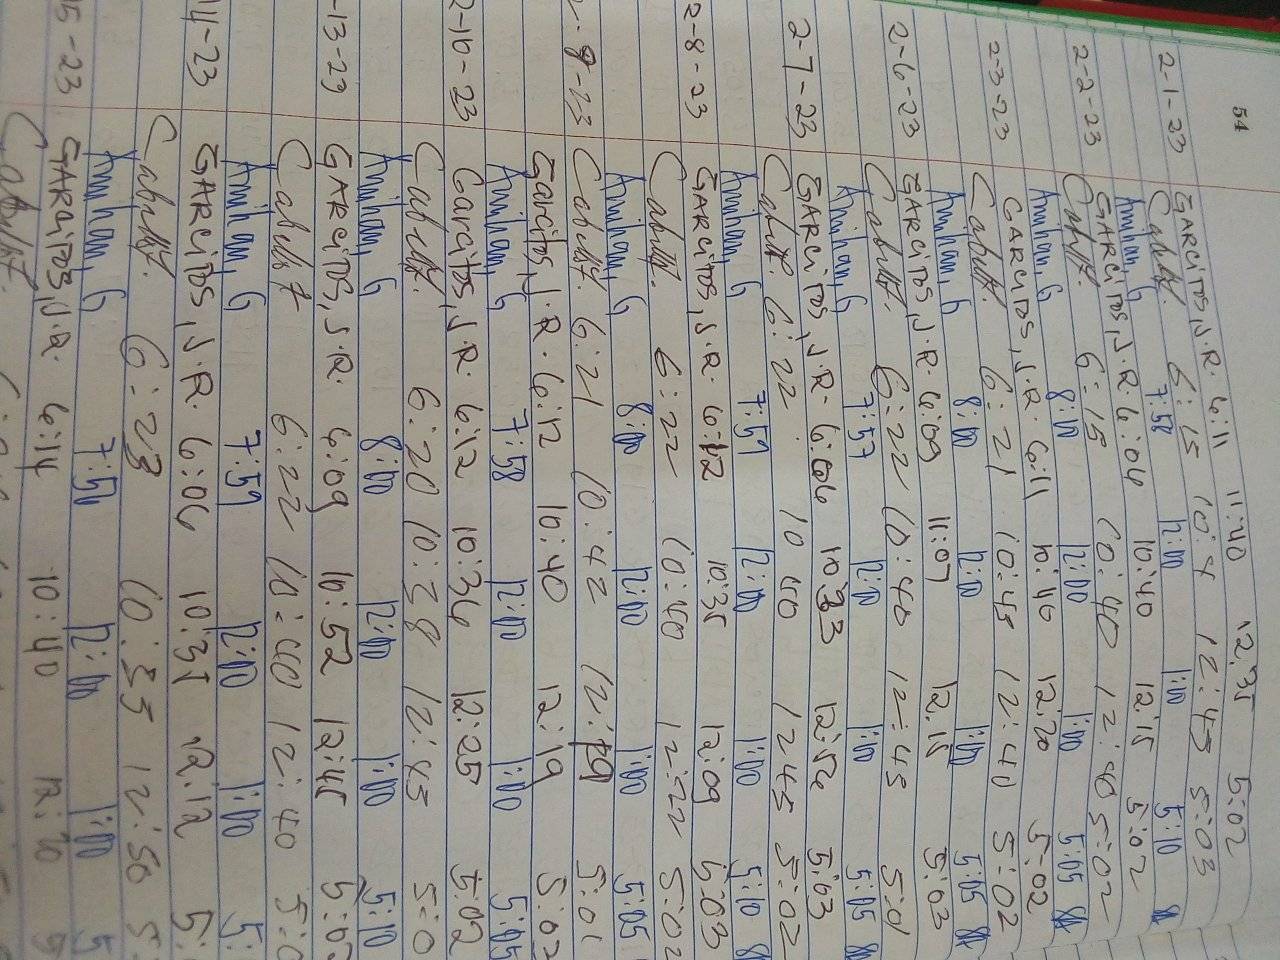 54
2-1-23 GARCITOS, J.R. 6:11 11:40 12:35 5:02
Cabult. 6:15 10:4 12:45 5:03
Amihan, G 7:58 12:00 1:00 5:10
2-2-23 GARCITOS, J.R. 6:04 10:40 12:15 5:02
Cabult. 6:15 10:40 12:45 5:02
Amihan, G 8:00 12:00 1:00 5:05
2-3-23 GARCITOS, J.R. 6:11 10:40 12:20 5:02
Cabult. 6:21 10:45 12:40 5:02
Amihan, G 8:00 12:00 1:00 5:05
2-6-23 GARCITOS, J.R. 6:09 11:07 12:15 5:03
Cabult. 6:22 10:40 12:45 5:01
Amihan, G 7:57 12:00 1:00 5:05
2-7-23 GARCITOS, J.R. 6:06 10:33 12:52 5:03
Cabult. 6:22 10 40 12 45 5:02
Amihan, G 7:59 12:00 1:00 5:10
2-8-23 GARCITOS, J.R. 6:12 10:35 12:09 5:03
Cabult. 6:22 10:40 12:22 5:02
Amihan, G 8:00 12:00 1:00 5:05
2-9-23 Cabult. 6:21 10:42 12:19 5:01
Garcitos, J.R. 6:12 10:40 12:19 5:02
Amihan, G 7:58 12:00 1:00 5:05
2-10-23 Garcitos, J.R. 6:12 10:36 12:25 5:02
Cabult. 6:20 10:38 12:45 5:0
Amihan, G 8:00 12:00 1:00 5:10
-13-23 GARCITOS, J.R. 6:09 10:52 12:45 5:02
Cabult 6:22 10:40 12:40 5:0
Amihan, G 7:59 12:00 1:00 5:
14-23 GARCITOS, J.R. 6:06 10:31 12:12 5:
Cabult. 6:23 10:35 12:50 5:
Amihan, G 7:50 12:00 1:00 5
15-23 GARCITOS, J.R. 6:14 10:40 12:10 5
Cabult.